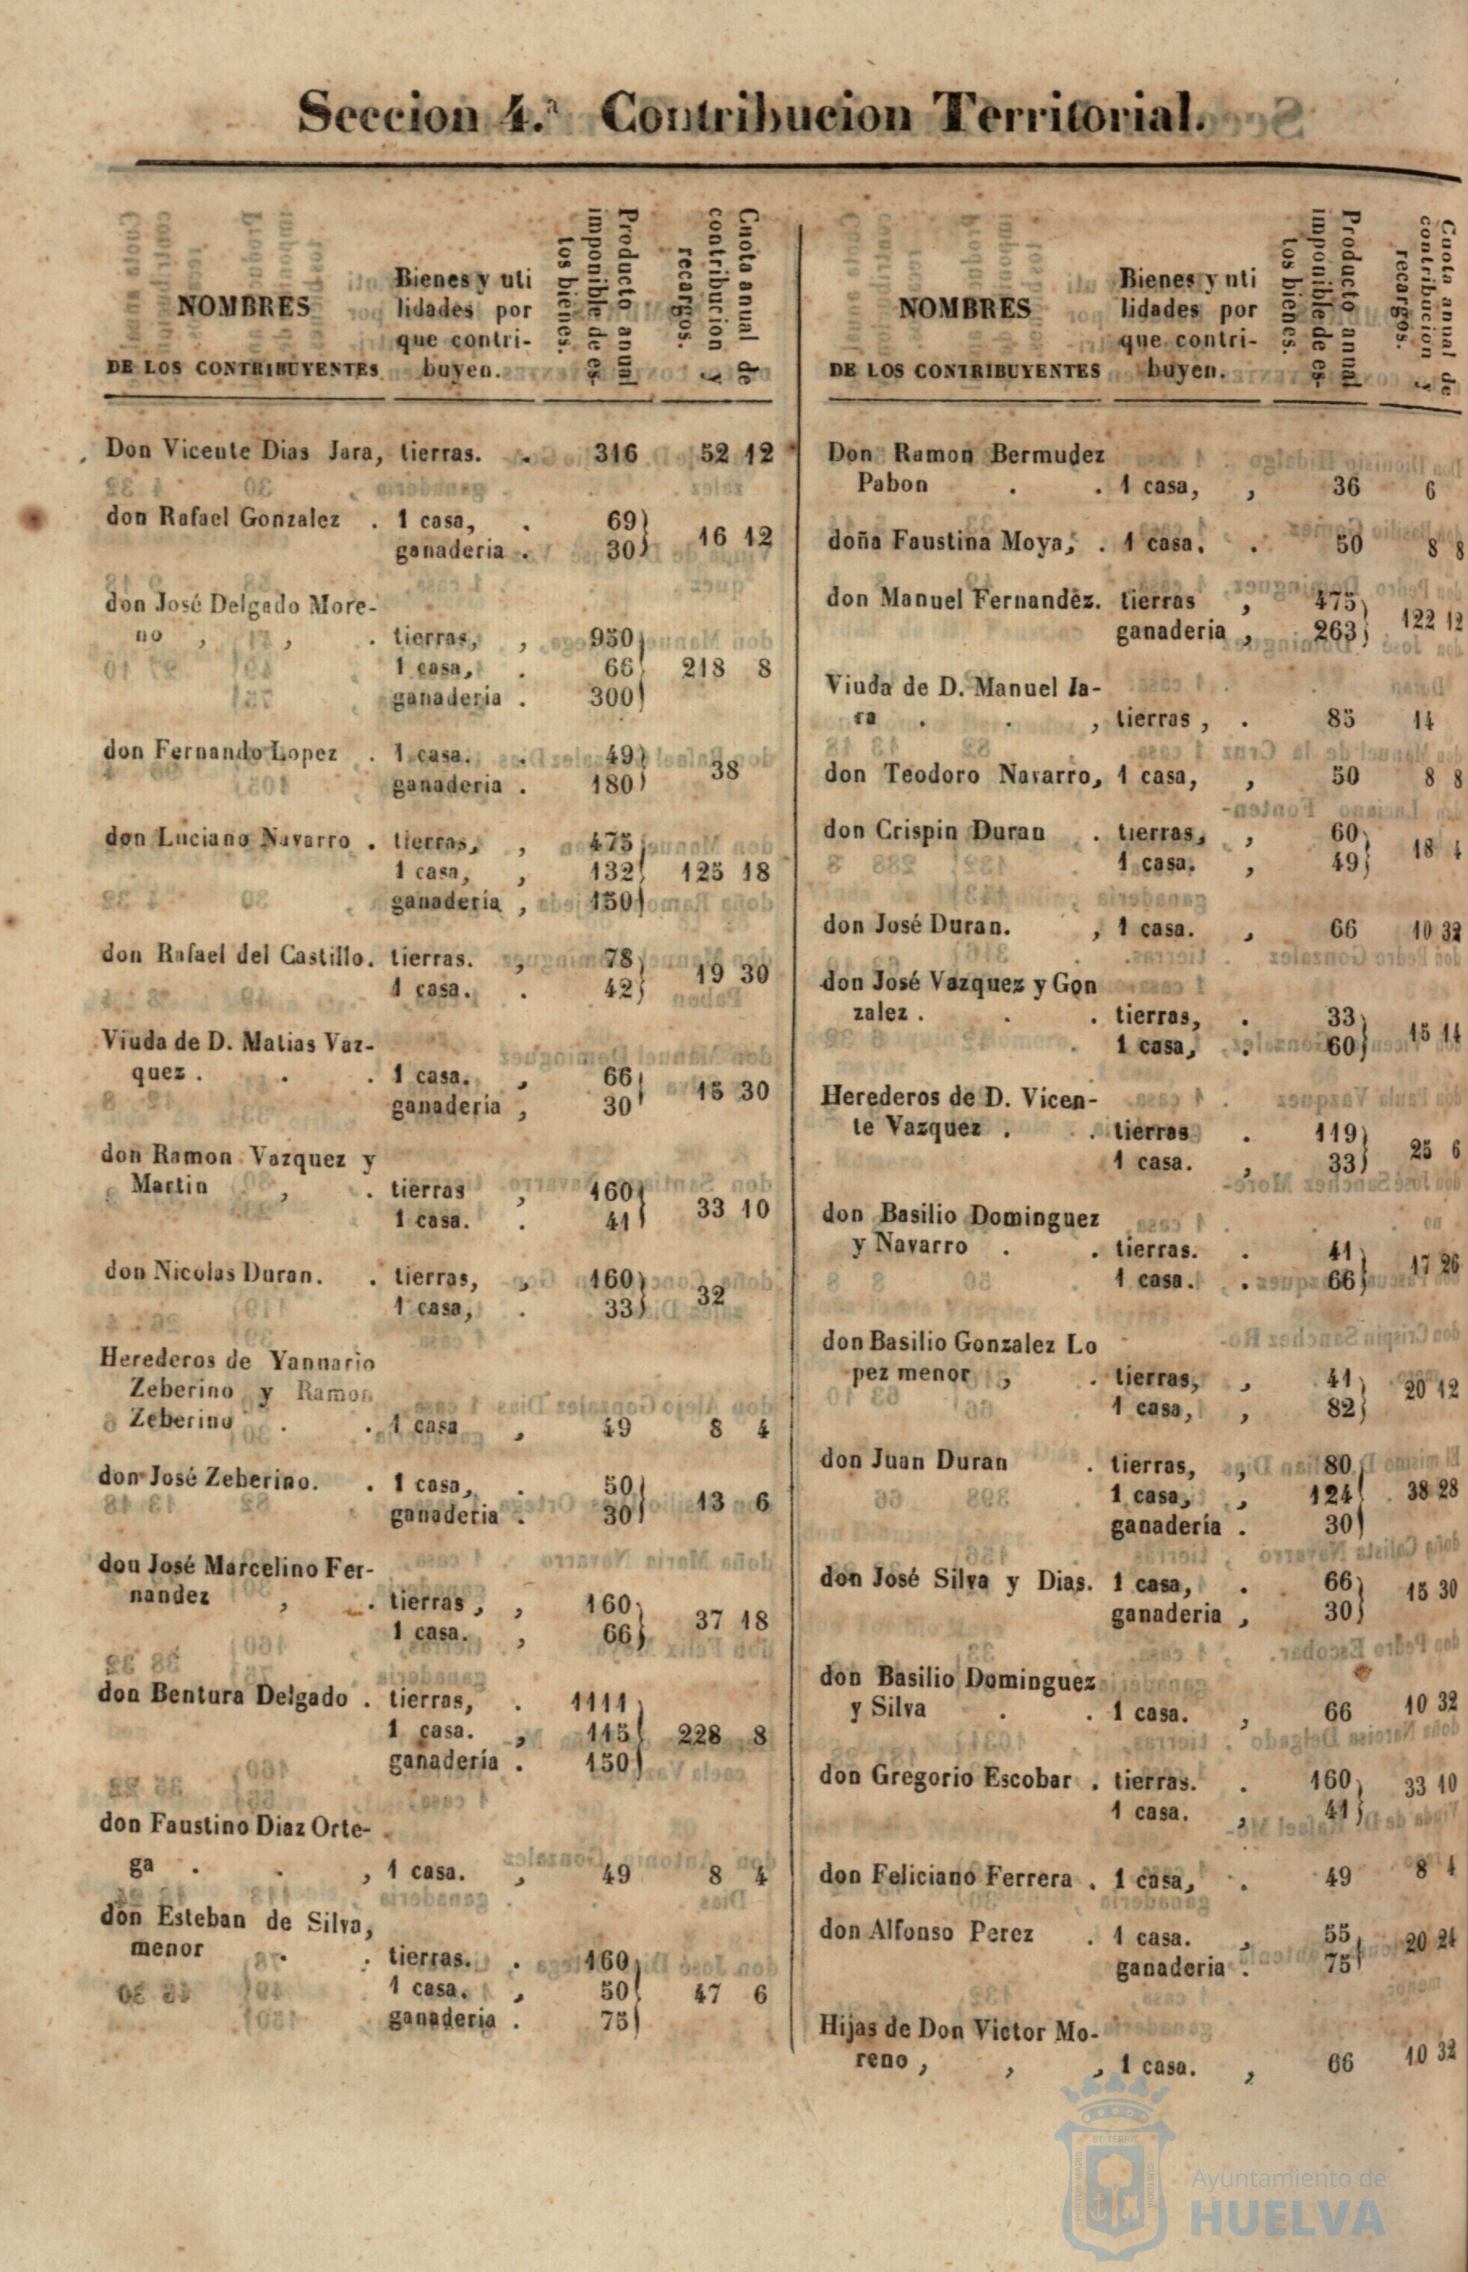 Seccion 4.ª Contribucion Territorial.
NOMBRES
DE LOS CONTRIBUYENTES
Bienes y uti
lidades por
que contri-
buyen.
Producto anual
imponible de es-
tos bienes.
Cuota anual de
contribucion y
recargos.
Don Vicente Dias Jara, tierras. . 316 52 12
don Rafael Gonzalez . 1 casa, . 69
16 12
ganaderia . 30
don José Delgado More-
no , , . tierras, , 950
1 casa, . 66 218 8
ganaderia . 300
don Fernando Lopez . 1 casa. . 49
38
ganaderia . 180
don Luciano Navarro . tierras, , 475
1 casa, , 132 125 18
ganaderia , 150
don Rafael del Castillo. tierras. , 78
19 30
1 casa. . 42
Viuda de D. Matias Vaz-
quez . . . 1 casa. , 66
15 30
ganaderia , 30
don Ramon Vazquez y
Martin , . tierras , 160
33 10
1 casa. . 41
don Nicolas Duran. . tierras, , 160
32
1 casa, . 33
Herederos de Yannario
Zeberino y Ramon
Zeberino . . 1 casa , 49 8 4
don José Zeberino. . 1 casa, . 50
13 6
ganaderia . 30
don José Marcelino Fer-
nandez , . tierras , , 160
37 18
1 casa. , 66
don Bentura Delgado . tierras, . 1111
1 casa. , 115 228 8
ganadería . 150
don Faustino Diaz Orte-
ga . . , 1 casa. , 49 8 4
don Esteban de Silva,
menor . . tierras. . 160
1 casa. , 50 47 6
ganaderia . 75
NOMBRES
DE LOS CONTRIBUYENTES
Bienes y uti
lidades por
que contri-
buyen.
Producto anual
imponible de es-
tos bienes.
Cuota anual de
contribucion y
recargos.
Don Ramon Bermudez
Pabon . . 1 casa, , 36 6
doña Faustina Moya, . 1 casa. . 50 8 8
don Manuel Fernandez. tierras , 475
122 12
ganaderia , 263
Viuda de D. Manuel Ja-
ra . . , tierras , . 85 14
don Teodoro Navarro, 1 casa, , 50 8 8
don Crispin Duran . tierras, , 60
18 4
1 casa. , 49
don José Duran. , 1 casa. , 66 10 32
don José Vazquez y Gon
zalez . . . tierras, . 33
15 14
1 casa, . 60
Herederos de D. Vicen-
te Vazquez . . tierras . 119
25 6
1 casa. , 33
don Basilio Dominguez
y Navarro . . tierras. . 41
17 26
1 casa. . 66
don Basilio Gonzalez Lo
pez menor , . tierras, , 41
20 12
1 casa, , 82
don Juan Duran . tierras, , 80
1 casa, , 124 38 28
ganadería . 30
don José Silva y Dias. 1 casa, . 66
15 30
ganaderia , 30
don Basilio Dominguez
y Silva . . 1 casa. , 66 10 32
don Gregorio Escobar . tierras. . 160
33 10
1 casa. , 41
don Feliciano Ferrera . 1 casa, . 49 8 4
don Alfonso Perez . 1 casa. , 55
20 24
ganaderia . 75
Hijas de Don Victor Mo-
reno , , , 1 casa. , 66 10 32
Ayuntamiento de
HUELVA